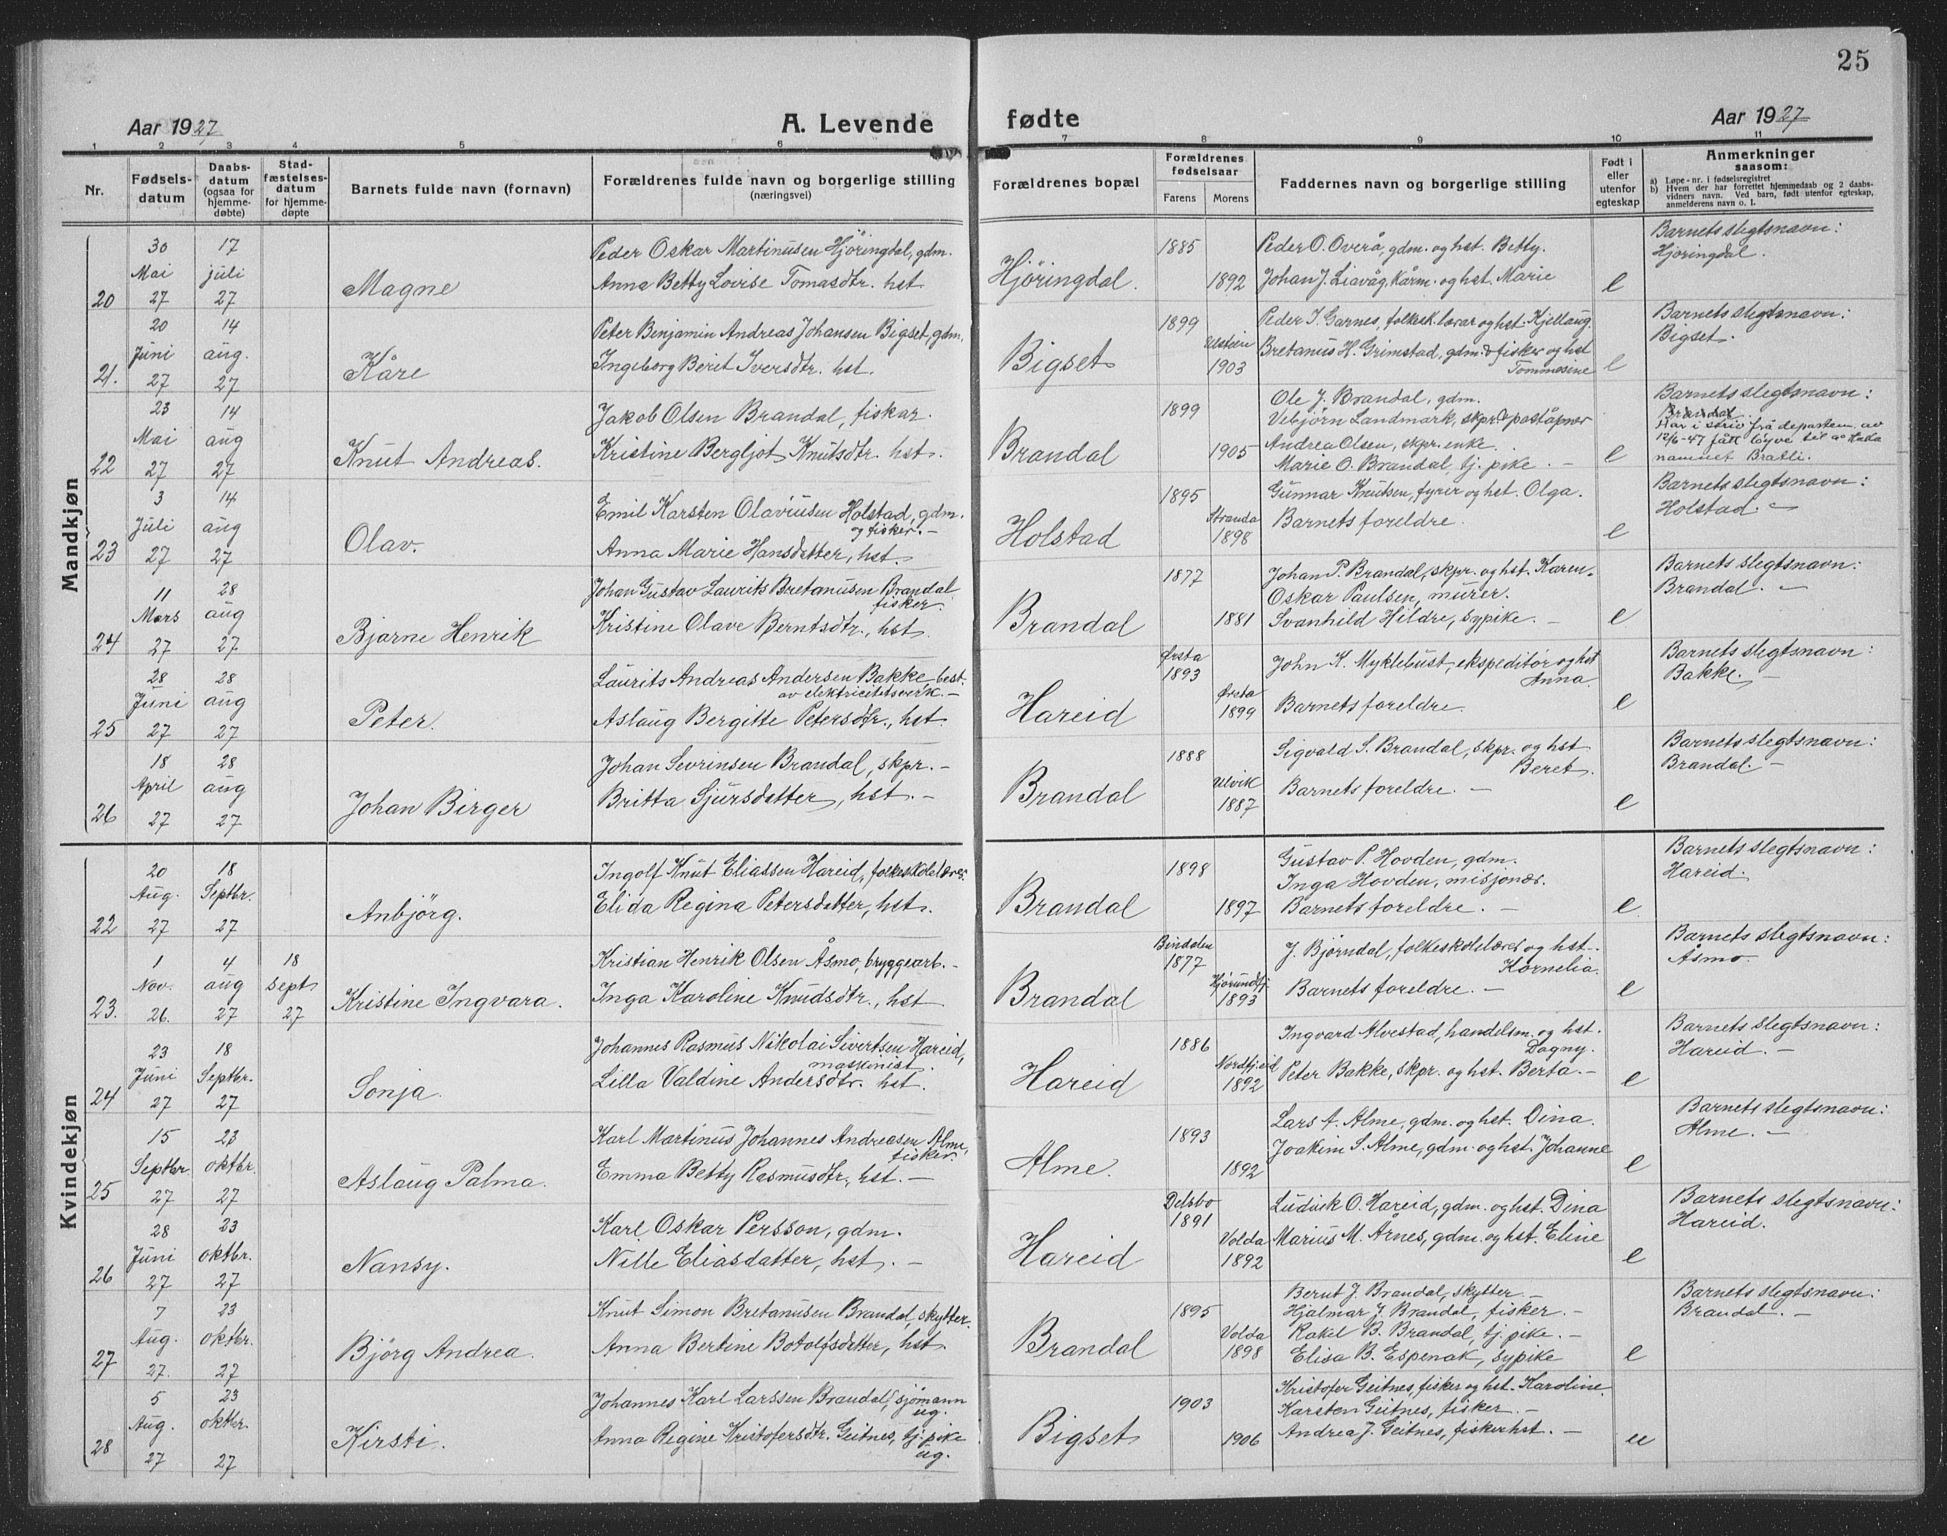 25
Aar 1927 A. Levende fødte Aar 1927
1 2 3 4 5 6 7 8 9 10 11
Nr. | Fødselsdatum | Daabsdatum (ogsaa for hjemmedøbte) | Stadfæstelsesdatum for hjemmedøpte | Barnets fulde navn (fornavn) | Forældrenes fulde navn og borgerlige stilling (næringsvei) | Forældrenes bopæl | Forældrenes fødselsaar Farens Morens | Faddernes navn og borgerlige stilling | Født i eller utenfor egteskap | Anmerkninger saasom:
a) Løpe-nr. i fødselsregistret
b) Hvem der har forrettet hjemmedaab og 2 daabsvidners navn. Ved barn, født utenfor egteskap, anmelderens navn o. l.
Mandkjøn
20 | 30 Mai 27 | 17 juli 27 | Magne
Peder Oskar Martinusen Hjöringdal, gdm.
Anna Betty Lovise Tomasdtr. hst.
Hjöringdal. | 1885 | 1892
Peder O. Overå, gdm. og hst. Betty.
Johan J. Liavåg, kårm. og hst. Marie
e
Barnets slegtsnavn:
Hjöringdal.
21. | 20 Juni 27 | 14 aug. 27 | Kåre
Peter Benjamin Andreas Johansen Bigset, gdm.
Ingeborg Berit Iversdtr. hst.
Bigset | 1899 | Ulstein 1903
Peder I. Garnes, folkesk.lærar og hst. Kjellaug.
Bretanus H. Grimstad, gdm. & fisker og hst
Tommesine
e
Barnets slegtsnavn:
Bigset.
22 | 23 Mai 27 | 14 aug 27 | Knut Andreas.
Jakob Olsen Brandal, fiskar.
Kristine Bergljot Knutsdtr. hst.
Brandal | 1899 | 1905
Ole J. Brandal, gdm.
Vebjörn Landmark, skpr. & poståpner
Andrea Olsen, skpr. enke.
Marie O. Brandal, tj. pike. -
e
Barnets slegtsnavn:
Brandal.
Har i skriv frå departem. av
12/6-47 fått löyve til å taka
namnet Bratli.
23 | 3 Juli 27 | 14 aug 27 | Olav.
Emil Karsten Olaviusen Holstad, gdm.
og fisker. -
Anna Marie Hansdatter, hst.
Holstad | 1895 | Stranda 1898
Gunnar Knutsen, fyrer og hst. Olga.
Barnets foreldre.
e
Barnets slegtsnavn:
Holstad. -
24 | 11 Mars 27 | 28 aug 27 | Bjarne Henrik
Johan Gustav Laurits Bretanusen Brandal
fisker.
Kristine Olave Berntsdtr., hst.
Brandal | 1877 | 1881
Johan P. Brandal, skpr. og hst. Karen.
Oskar Paulsen, murer.
Svanhild Hildre, sypike. -
e
Barnets slegtsnavn:
Brandal. -
25 | 28 Juni 27 | 28 aug 27 | Peter.
Laurits Andreas Andersen Bakke best.
av elektricitetsverk. -
Aslaug Bergitte Petersdtr., hst.
Hareid | Ørsta 1893 | Ørsta 1899
John K. Myklebust, ekspeditör og hst
Anna.
Barnets foreldre.
e
Barnets slegtsnavn:
Bakke. -
26 | 18 April 27 | 28 aug 27 | Johan Birger
Johan Sevrinsen Brandal, skpr. -
Britta Sjursdatter, hst. -
Brandal | 1888 | Ulvik 1887
Sigvald S. Brandal, skpr. og hst
Beret.
Barnets foreldre. -
e
Barnets slegtsnavn:
Brandal. -
Kvindekjøn
22 | 20 Aug. 27 | 18 Septbr. 27 | Anbjörg.
Ingolf Knut Eliassen Hareid, folkeskolelærer.
Elida Regina Petersdatter, hst.
Brandal | 1898 | 1897
Gustav P. Hovden, gdm.
Inga Hovden, misjonær.
Barnets foreldre. -
e
Barnets slegtsnavn:
Hareid.
23. | 1 Nov. 26. | 4 aug 27 | 18 sept 27 | Kristine Ingvara.
Kristian Henrik Olsen Åsmo, bryggearb. -
Inga Karoline Knudsdtr., hst
Brandal | Bindalen 1877 | Hjørundfj. 1893
J. Bjørndal, folkeskolelærer og hst.
Kornelia.
Barnets foreldre. -
e
Barnets slegtsnavn:
Åsmo.
24 | 23 Juni 27 | 18 Septbr. 27 | Sonja.
Johannes Rasmus Nikolai Sivertsen Hareid,
maskinist.
Lilla Valdine Andersdtr. hst.
Hareid | 1886 | Nordfj.eid 1892
Ingvard Alvestad, handelsm. og hst.
Dagny.
Peter Bakke, skpr. og hst. Berta. -
e
Barnets slegtsnavn:
Hareid. -
25 | 15 Septbr. 27 | 23 oktbr. 27 | Aslaug Palma.
Karl Martinus Johannes Andreasen Alme,
fisker.
Emma Betty Rasmusdtr., hst. -
Alme. | 1893 | 1892
Lars A. Alme, gdm. og hst. Dina.
Joakim S. Alme, gdm. og hst. Johanne
e
Barnets slegtsnavn:
Alme. -
26 | 28 Juni 27 | 23 oktbr. 27 | Nansy.
Karl Oskar Persson, gdm.
Nille Eliasdatter, hst. -
Hareid | Delsbo 1891 | Volda 1892
Ludvik O. Hareid, gdm. og hst. Dina
Marius M. Årnes, gdm. og hst. Eline
e
Barnets slegtsnavn:
Hareid.
27 | 7 Aug. 27. | 23 oktbr. 27 | Bjørg Andrea.
Knut Simon Bretanusen Brandal, skytter.
Anna Bertine Botolfsdatter, hst
Brandal | 1895 | Volda 1898
Bernt J. Brandal, skytter. -
Hjalmar J. Brandal, fisker. -
Rakel B. Brandal, tj. pike. -
Elisa B. Espenak, sypike
e
Barnets slegtsnavn:
Brandal. -
28 | 5 Aug. 27 | 23 oktbr. 27 | Kirsti.
Johannes Karl Larssen Brandal, sjömann
ug.
Anna Regine Kristofersdtr. Geitnes, tj. pike
ug.
Bigset | 1903 | 1906
Kristofer Geitnes, fisker og hst. Karoline.
Karsten Geitnes, fisker. -
Andrea J. Geitnes, fiskerhst. -
ue